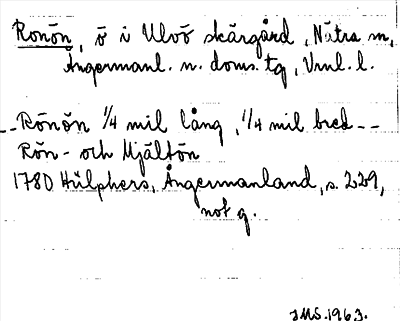 Ronön, ö i Ulvö skärgård, Nätra sn,
Ångermanl. n. doms. tg, Vnrl. l.
--Rönön 1/4 mil lång, 1/4 mil bred--
Rön- och Mjältön
1780 Hülphers, Ångermanland, s. 229,
not g.
JMS. 1963.